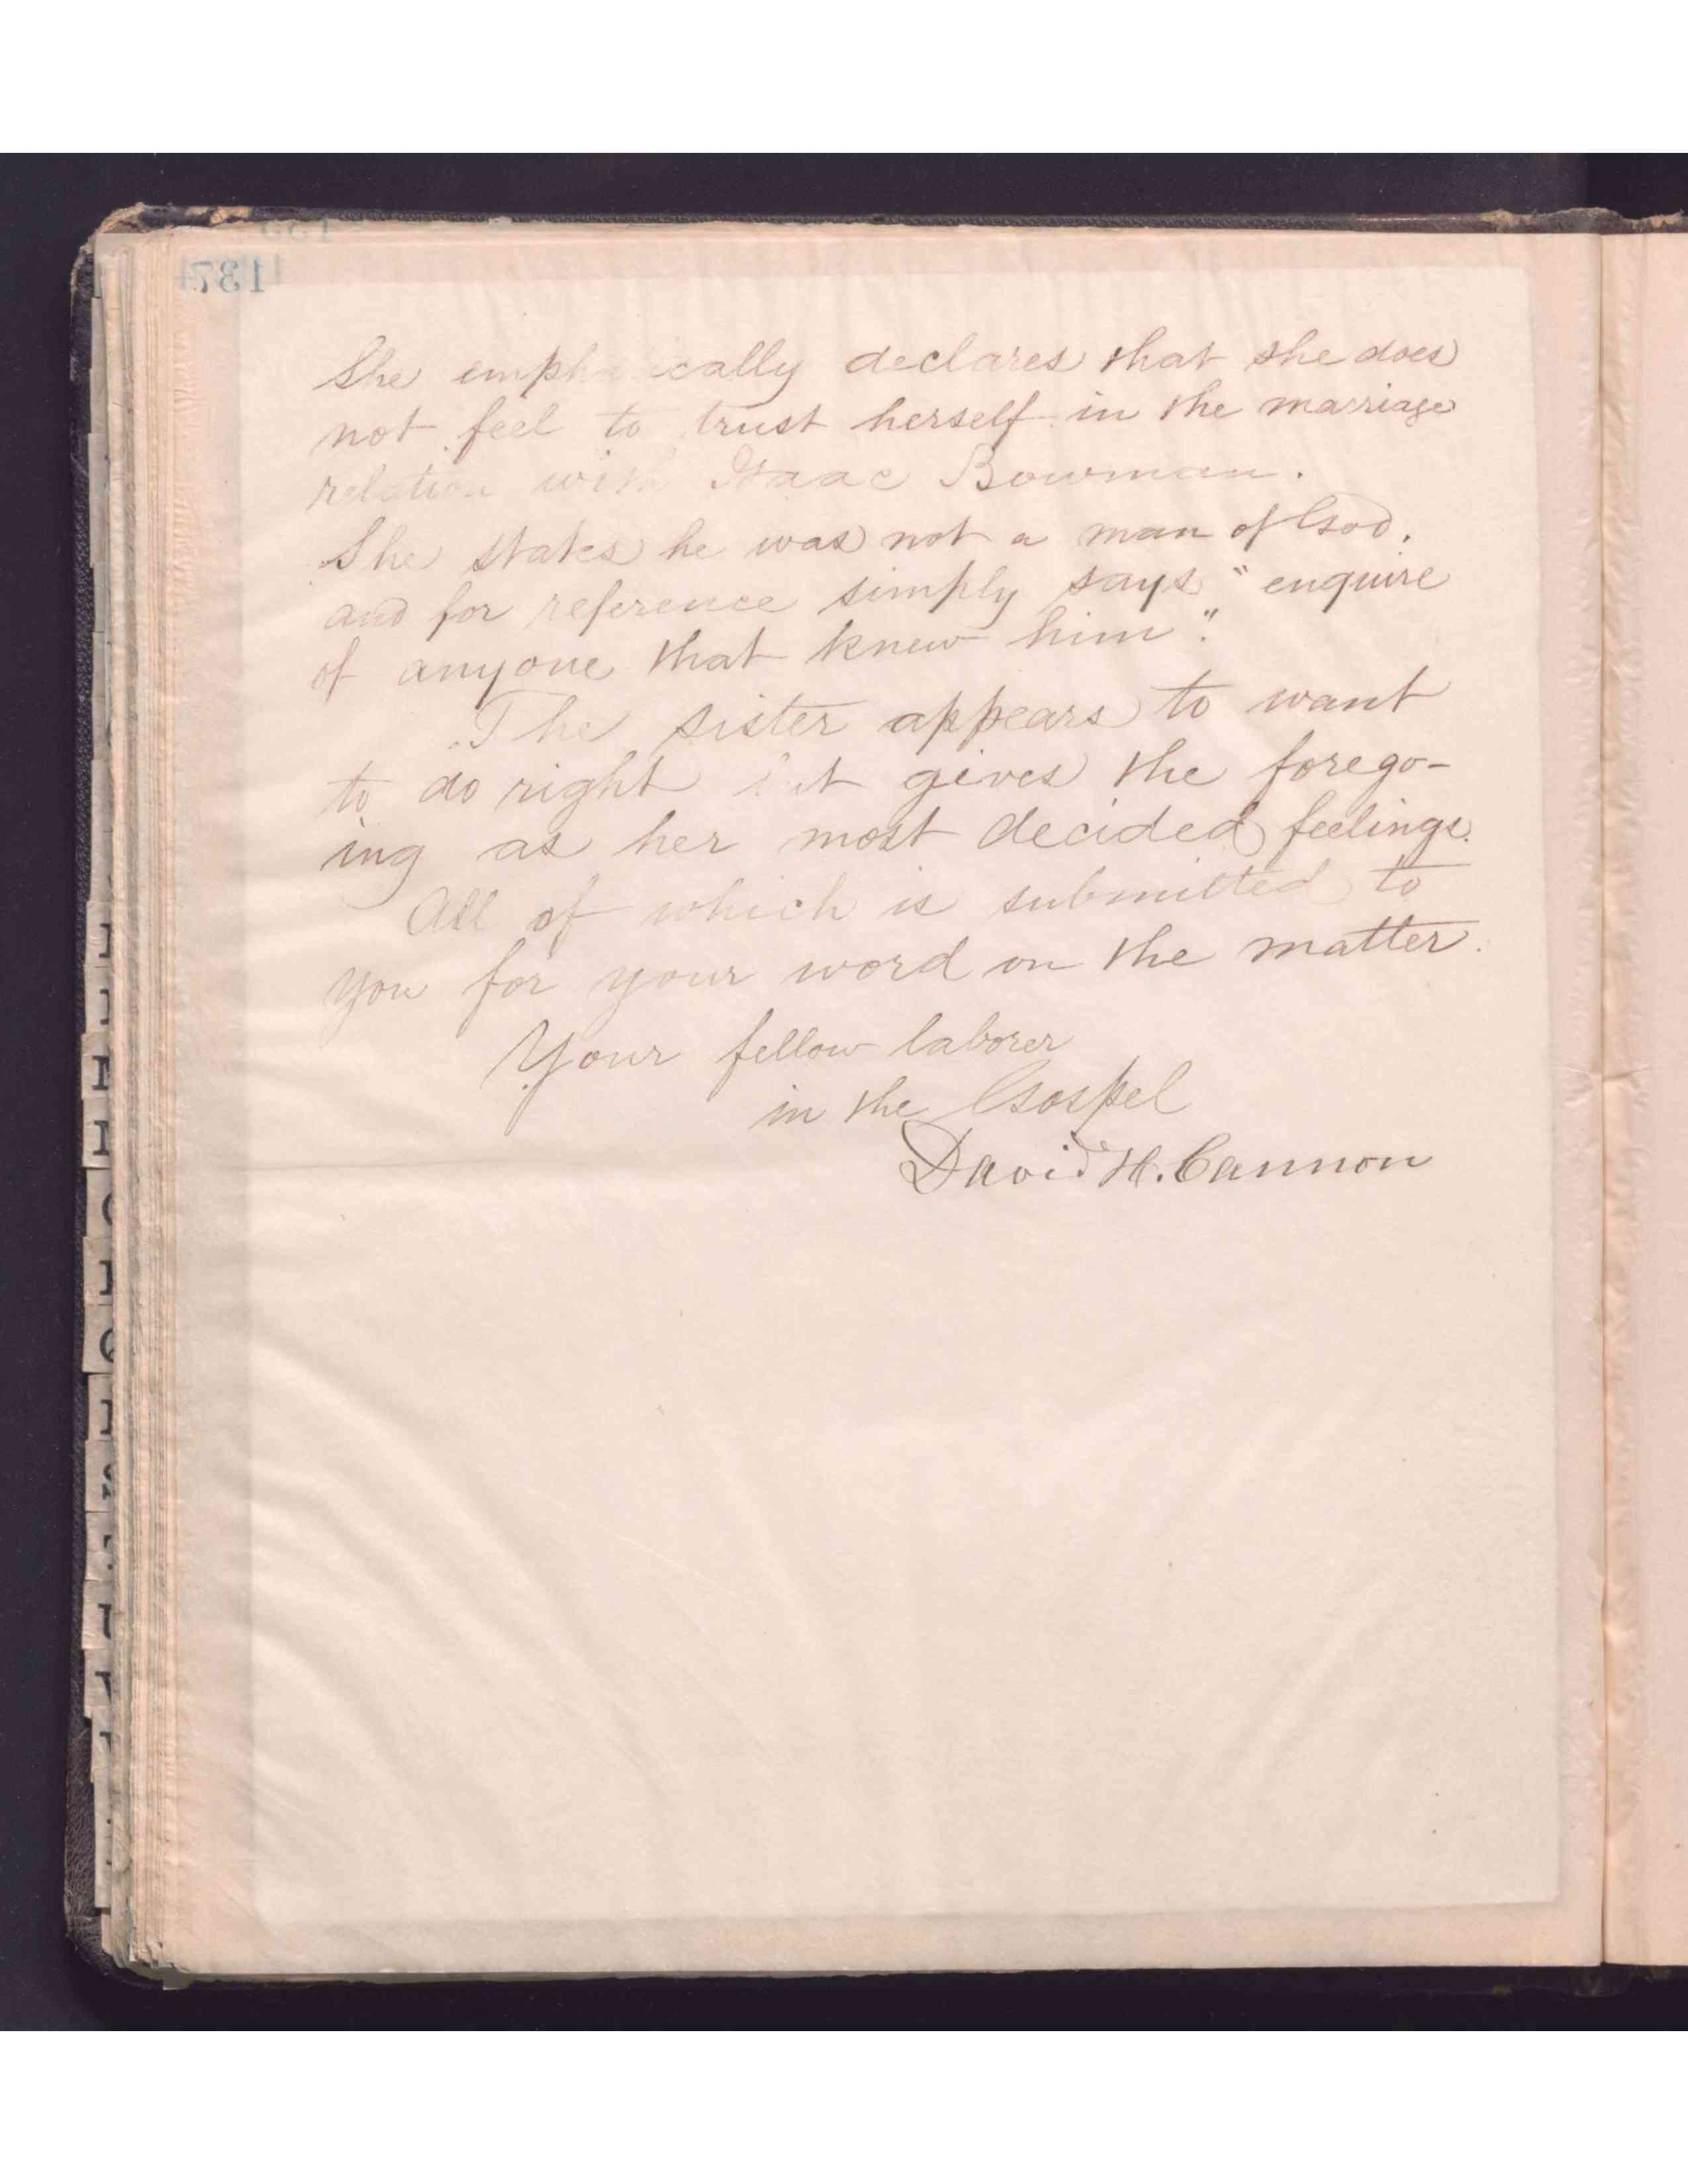 137
She emphatically declares that she does
not feel to trust herself in the marriage
relation with Isaac Bowman.
She states he was not a man of God.
and for reference simply says "enquire
of anyone that knew him".
The sister appears to want
to do right but gives the forego-
ing as her most decided feelings.
All of which is submitted to
you for your word on the matter.
Your fellow laborer
in the Gospel
David H. Cannon